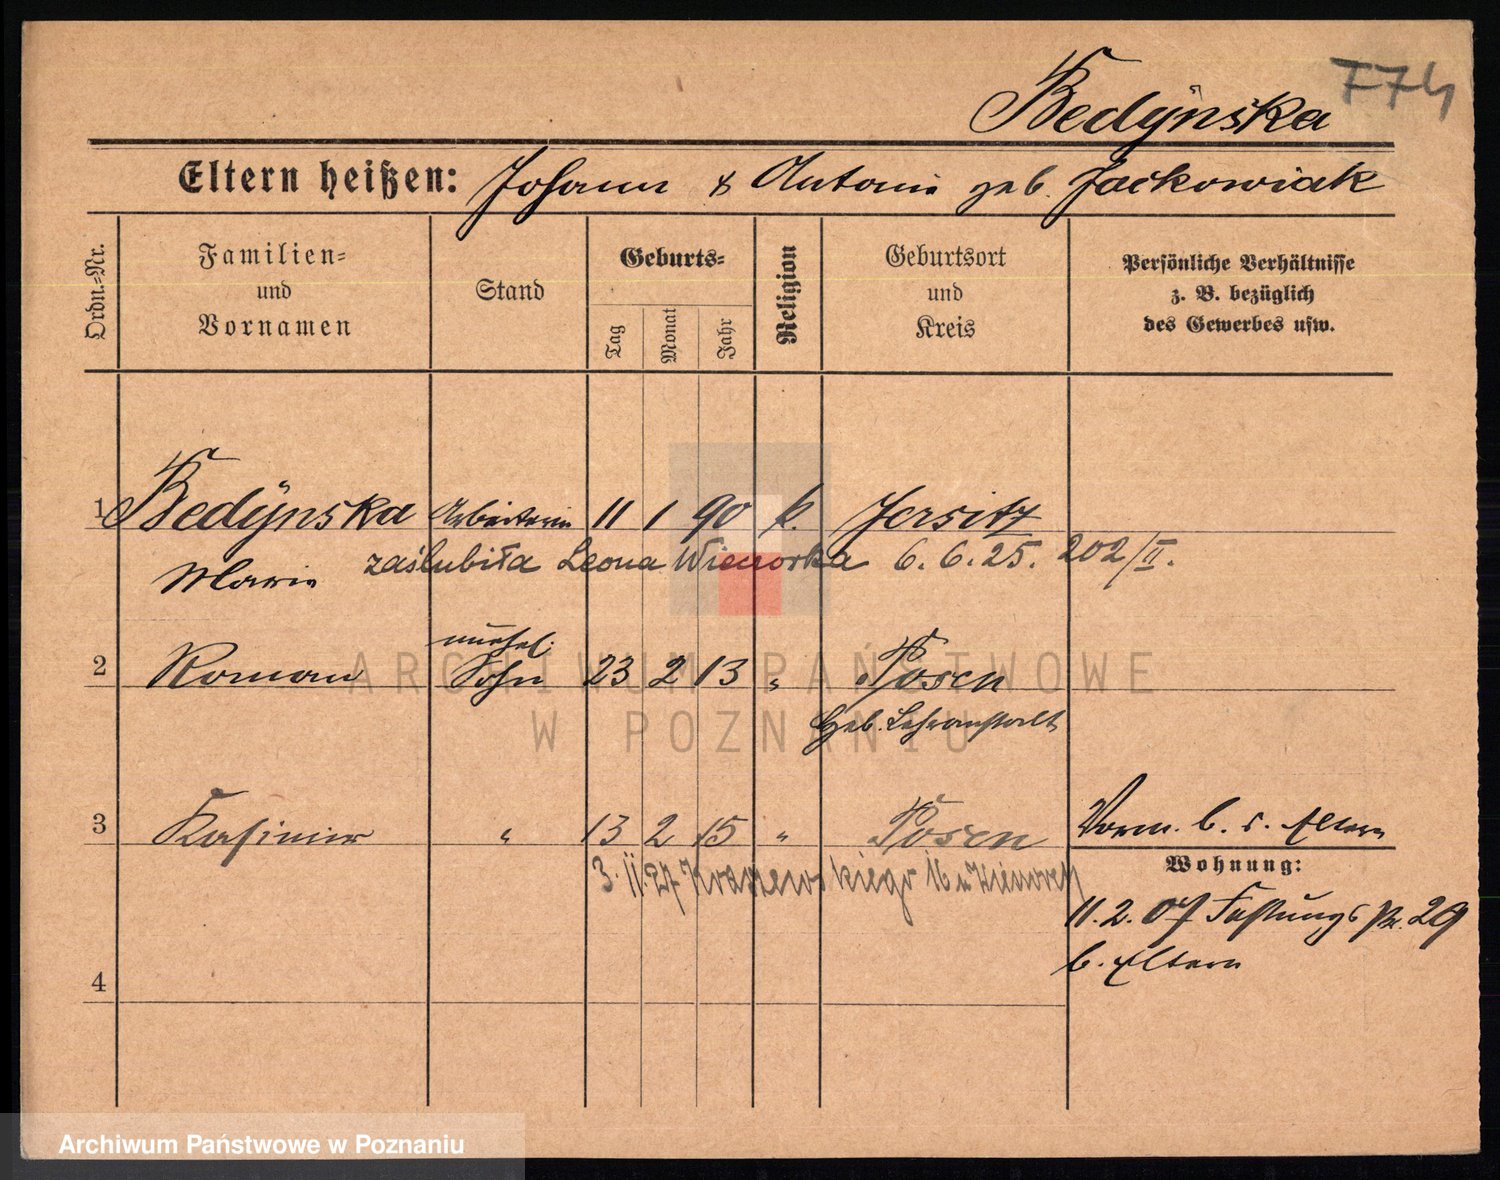 F74
Bedÿnska
Eltern heißen: Johann & Antonie geb. Jackowiak
Ordn.-Nr.
Familien- und Vornamen
Stand
Geburts-
Tag
Monat
Jahr
Religion
Geburtsort und Kreis
Persönliche Verhältnisse
z. B. bezüglich
des Gewerbes usw.
1 Bedÿnska Arbeiterin 11 1 90 k. Jersitz
Marie zaślubiła Leona Wieworka 6.6.25. 202/II.
unehel.
2 Roman Sohn 23 2 13 " Posen
Geb. Lehranstalt
3 Kasimir " 13 2 15 " Posen
Vorm. b. s. Eltern
3.II.27 16
Wohnung:
11.2.07 Festungs 29
b. Eltern
4
ARCHIWUM PAŃSTWOWE
W POZNANIU
Archiwum Państwowe w Poznaniu